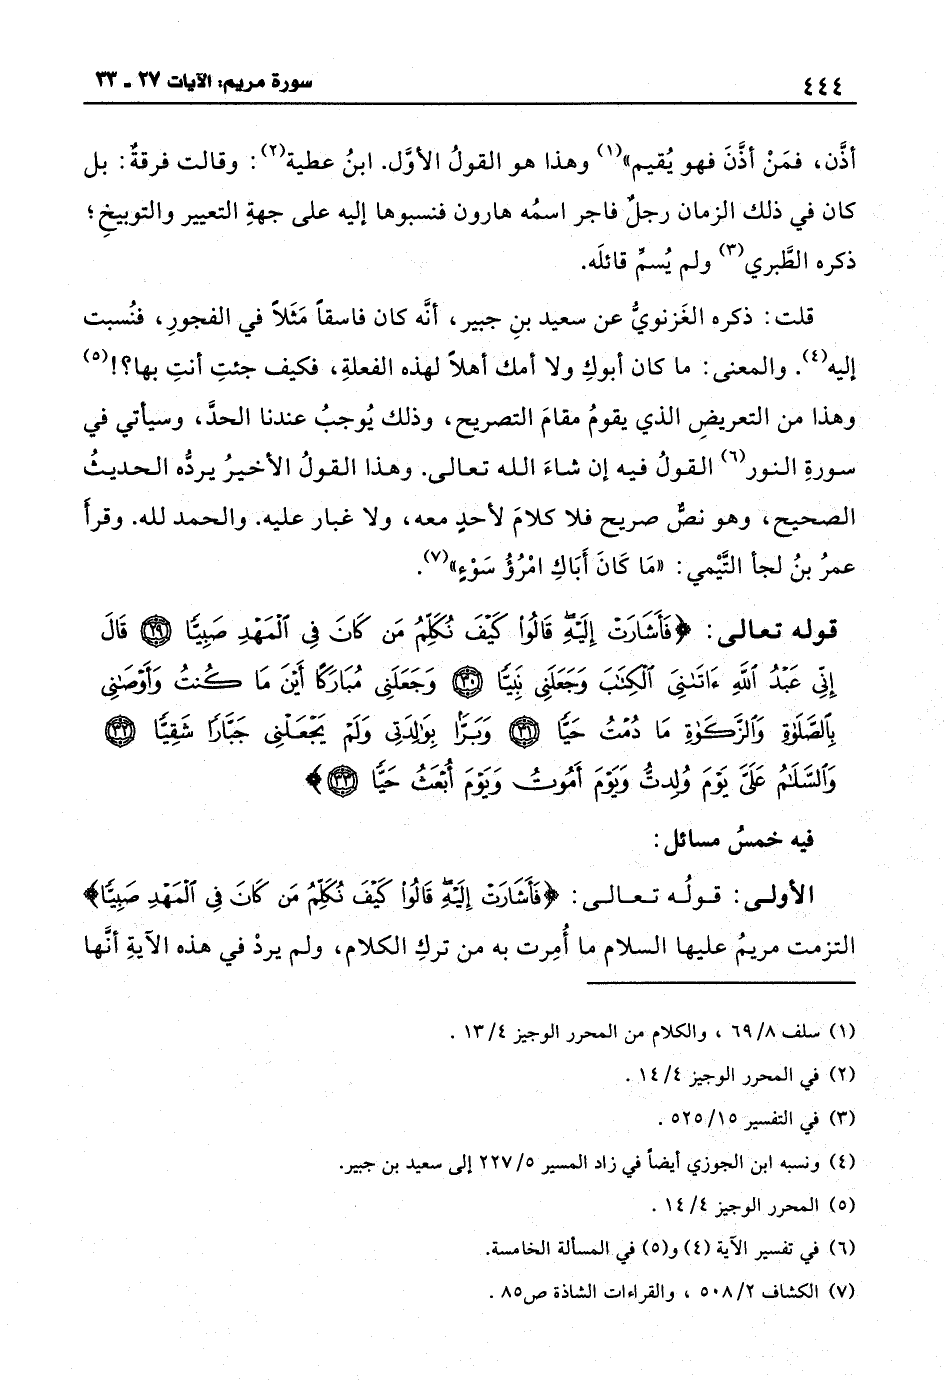 ٤٤٤ سورة مريم: الآيات ٢٧ ـ ٣٣
أذَّن، فمَنْ أذَّنَ فهو يُقيم»(١) وهذا هو القولُ الأوَّل. ابنُ عطية(٢): وقالت فرقةٌ: بل
كان في ذلك الزمان رجلٌ فاجر اسمُه هارون فنسبوها إليه على جهةِ التعيير والتوبيخِ؛
ذكره الطَّبري(٣) ولم يُسمِّ قائلَه.
قلت: ذكره الغَزنويُّ عن سعيد بنِ جبير، أنَّه كان فاسقاً مَثَلاً في الفجورِ، فنُسبت
إليه(٤). والمعنى: ما كان أبوكِ ولا أمك أهلاً لهذه الفعلةِ، فكيف جئتِ أنتِ بها؟!(٥)
وهذا من التعريضِ الذي يقومُ مقامَ التصريح، وذلك يُوجبُ عندنا الحدَّ، وسيأتي في
سورةِ النور(٦) القولُ فيه إن شاءَ الله تعالى. وهذا القولُ الأخيرُ يردُّه الحديثُ
الصحيح، وهو نصٌّ صريح فلا كلامَ لأحدٍ معه، ولا غبار عليه. والحمد لله. وقرأ
عمرُ بنُ لجأ التَّيْمي: «مَا كَانَ أَبَاكِ امْرُؤُ سَوْءٍ»(٧).
قوله تعالى: ﴿فَأَشَارَتْ إِلَيْهِۖ قَالُوا۟ كَيْفَ نُكَلِّمُ مَن كَانَ فِى ٱلْمَهْدِ صَبِيًّا ۝٢٩ قَالَ
إِنِّى عَبْدُ ٱللَّهِ ءَاتَىٰنِىَ ٱلْكِتَٰبَ وَجَعَلَنِى نَبِيًّا ۝٣٠ وَجَعَلَنِى مُبَارَكًا أَيْنَ مَا كُنتُ وَأَوْصَٰنِى
بِٱلصَّلَوٰةِ وَٱلزَّكَوٰةِ مَا دُمْتُ حَيًّا ۝٣١ وَبَرًّۢا بِوَٰلِدَتِى وَلَمْ يَجْعَلْنِى جَبَّارًا شَقِيًّا ۝٣٢
وَٱلسَّلَٰمُ عَلَىَّ يَوْمَ وُلِدتُّ وَيَوْمَ أَمُوتُ وَيَوْمَ أُبْعَثُ حَيًّا ۝٣٣﴾
فيه خمسُ مسائل:
الأولى: قولُه تعالى: ﴿فَأَشَارَتْ إِلَيْهِۖ قَالُوا۟ كَيْفَ نُكَلِّمُ مَن كَانَ فِى ٱلْمَهْدِ صَبِيًّا﴾
التزمت مريمُ عليها السلام ما أُمِرت به من تركِ الكلام، ولم يردْ في هذه الآيةِ أنَّها
(١) سلف ٦٩/٨ ، والكلام من المحرر الوجيز ١٣/٤ .
(٢) في المحرر الوجيز ١٤/٤ .
(٣) في التفسير ٥٢٥/١٥ .
(٤) ونسبه ابن الجوزي أيضاً في زاد المسير ٢٢٧/٥ إلى سعيد بن جبير.
(٥) المحرر الوجيز ١٤/٤ .
(٦) في تفسير الآية (٤) و(٥) في المسألة الخامسة.
(٧) الكشاف ٥٠٨/٢ ، والقراءات الشاذة ص٨٥ .